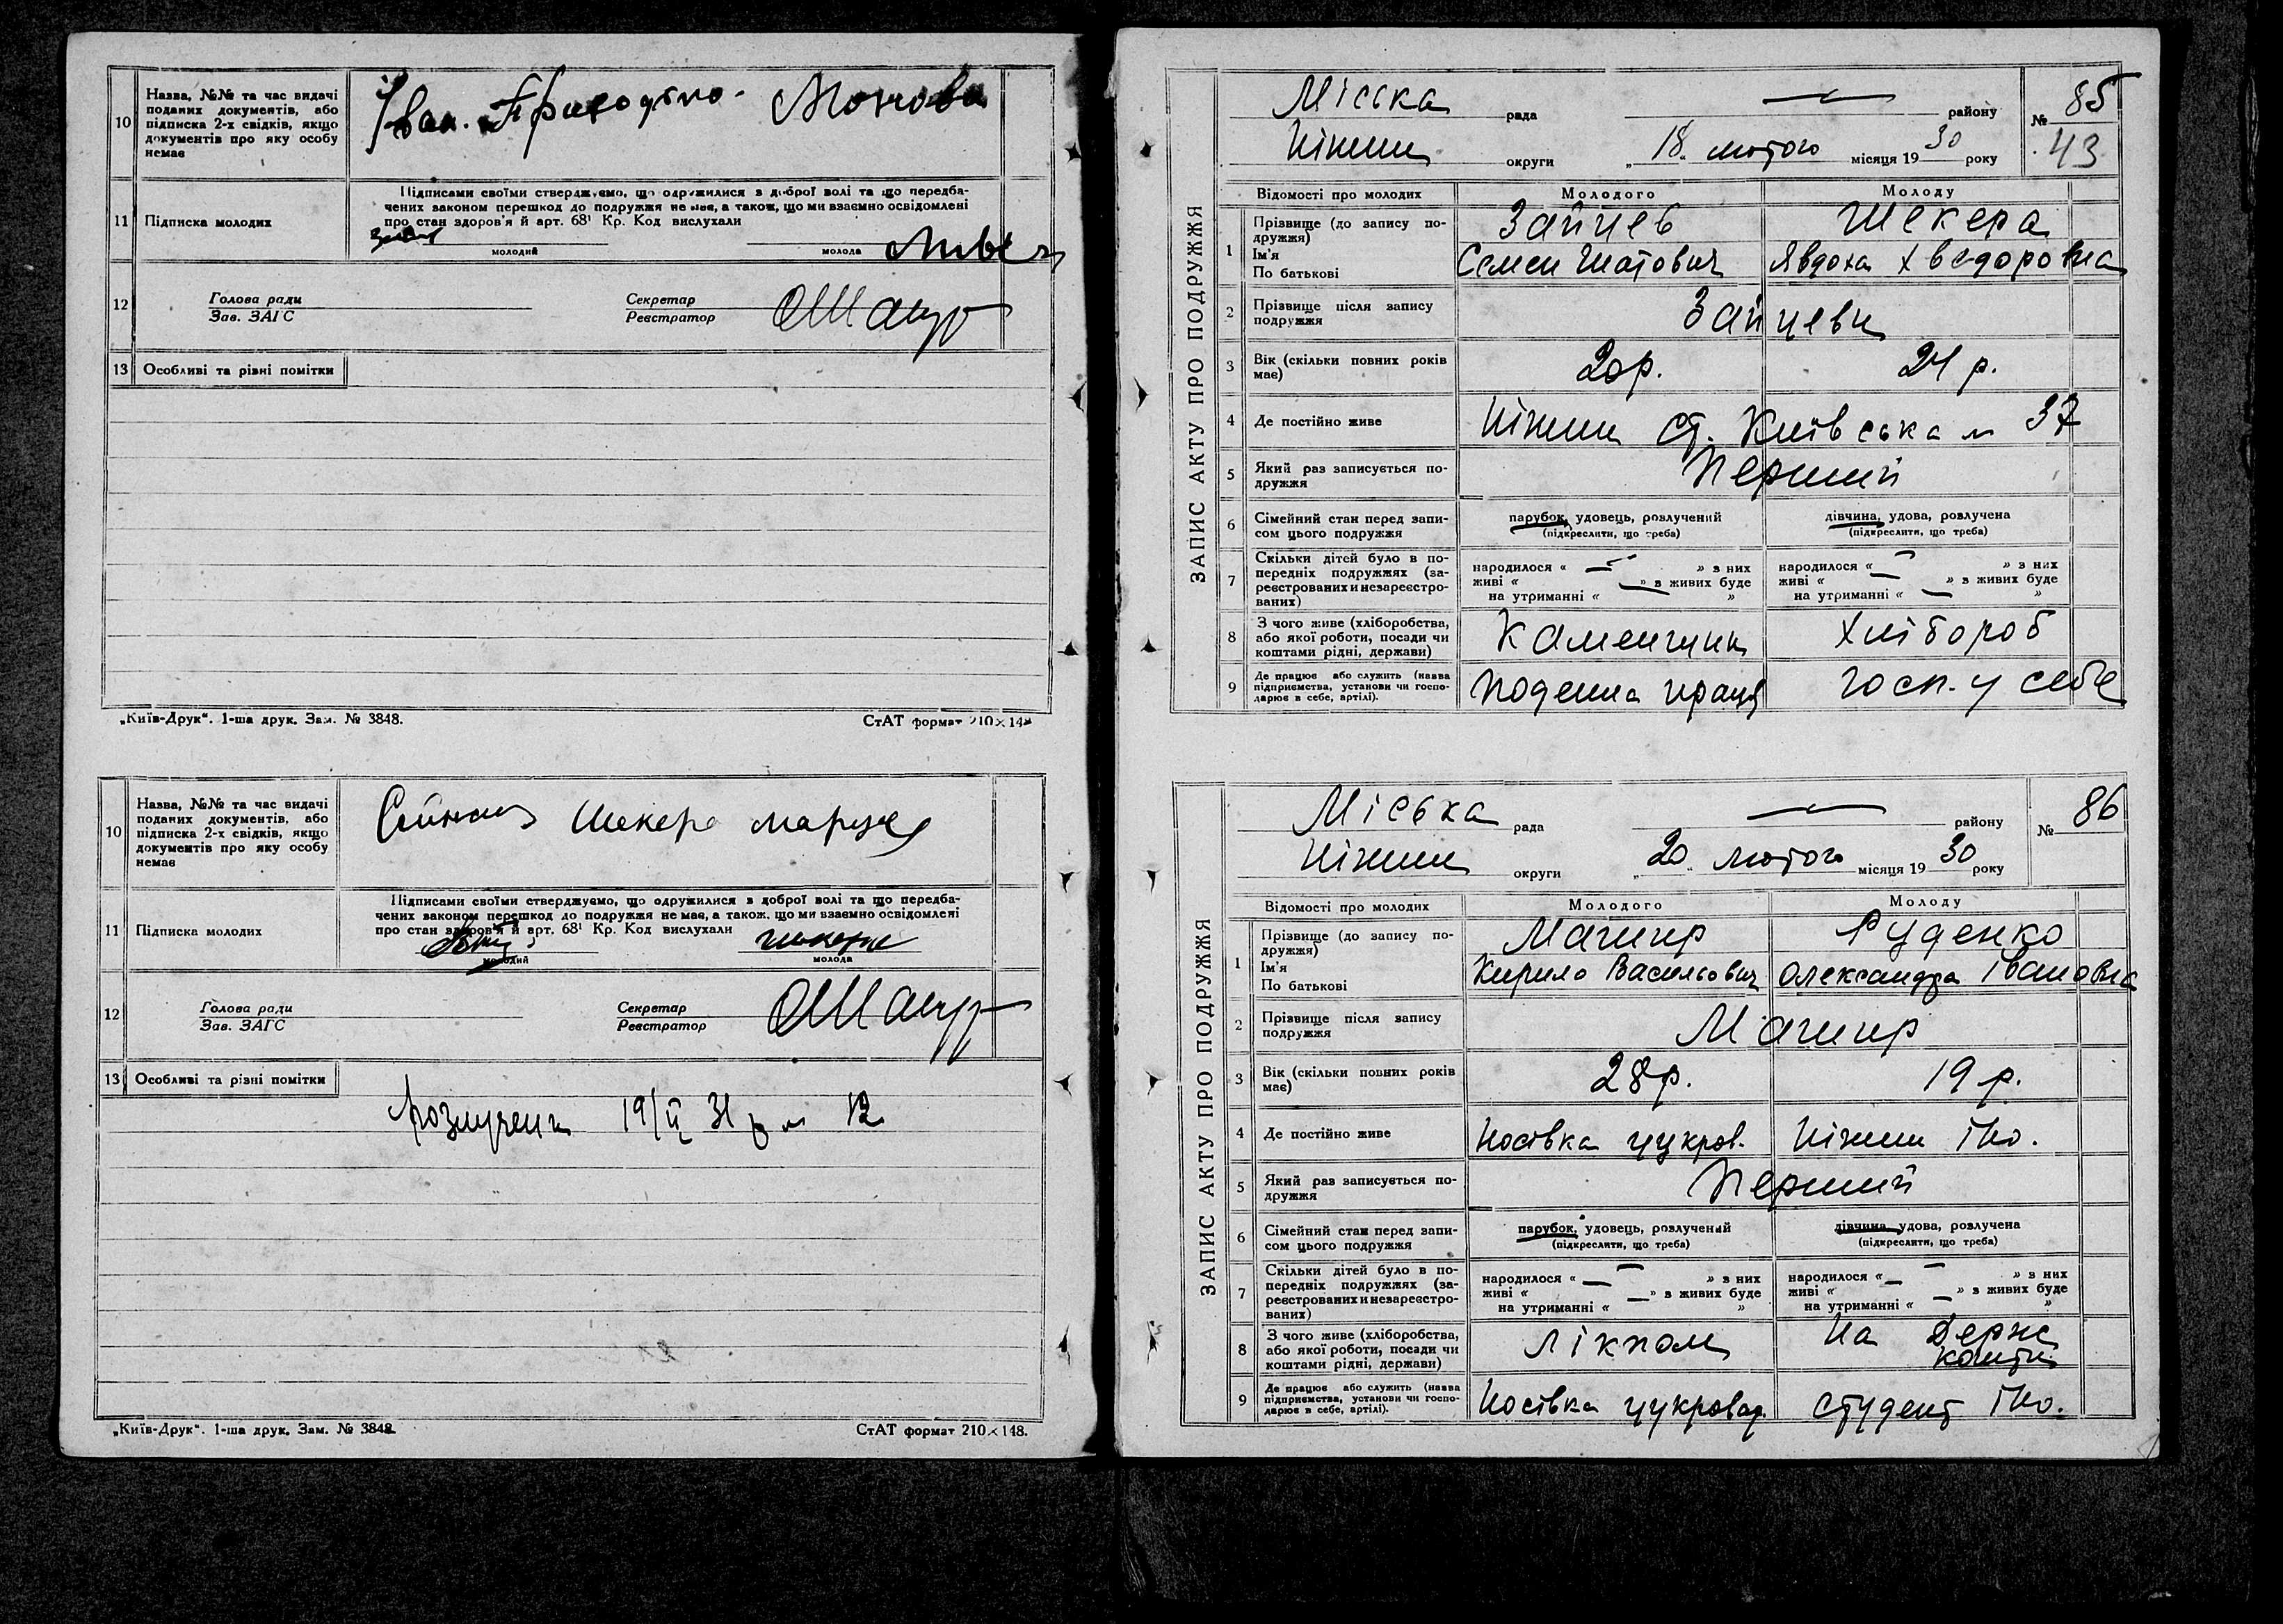 10 Назва, №№ та час видачі поданих документів, або підписка 2-х свідків, якщо документів про яку особу немає
Іван. Приходько.
11 Підписка молодих
Підписами своїми стверджуємо, що одружилися з доброї волі та що передба-
чених законом перешкод до подружжя не має, а також, що ми взаємно освідомлені
про стан здоров'я й арт. 68¹ Кр. Код вислухали
молодий молода
12 Голова ради Секретар
Зав. ЗАГС Реєстратор
13 Особливі та різні помітки
„Київ-Друк“. 1-ша друк. Зам. № 3848. СтАТ формат 210×148
10 Назва, №№ та час видачі поданих документів, або підписка 2-х свідків, якщо документів про яку особу немає
Шекера
11 Підписка молодих
Підписами своїми стверджуємо, що одружилися з доброї волі та що передба-
чених законом перешкод до подружжя не має, а також, що ми взаємно освідомлені
про стан здоров'я й арт. 68¹ Кр. Код вислухали
молодий молода
12 Голова ради Секретар
Зав. ЗАГС Реєстратор
13 Особливі та різні помітки
Розлучени 19/II 31 р № 12
„Київ-Друк“. 1-ша друк. Зам. № 3848. СтАТ формат 210×148.
ЗАПИС АКТУ ПРО ПОДРУЖЖЯ
Міська рада — району № 85
Ніжин округи „18„ лютого місяця 1930 року 43
Відомості про молодих Молодого Молоду
1 Прізвище (до запису по-дружжя) Зайцев Шекера
Ім'я По батькові Семен Титович Явдоха Хведоровна
2 Прізвище після запису подружжя Зайцеви
3 Вік (скільки повних років має) 20р. 24 р.
4 Де постійно живе Ніжин ст. Київська № 37
5 Який раз записується по-дружжя Перший
6 Сімейний стан перед запи-сом цього подружжя парубок, удовець, розлучений дівчина, удова, розлучена
(підкреслити, що треба) (підкреслити, що треба)
7 Скільки дітей було в по-передніх подружжях (за-реєстрованих и незареєстро-ваних)
народилося « — » з них народилося « — » з них
живі « — » з живих буде живі « — » з живих буде
на утриманні « » на утриманні « — »
8 З чого живе (хліборобства, або якої роботи, посади чи коштами рідні, держави) Каменщик Хлібороб
9 Де працює або служить (назва підприємства, установи чи госпо-дарює в себе, артілі). Поденна праця госп. у себе
ЗАПИС АКТУ ПРО ПОДРУЖЖЯ
Міська рада — району № 86
Ніжин округи „20„ лютого місяця 1930 року
Відомості про молодих Молодого Молоду
1 Прізвище (до запису по-дружжя) Магир Руденко
Ім'я По батькові Кирило Васильович Олександра Івановна
2 Прізвище після запису подружжя Магир
3 Вік (скільки повних років має) 28р. 19 р.
4 Де постійно живе Носівка цукров. Ніжин Іно.
5 Який раз записується по-дружжя Перший
6 Сімейний стан перед запи-сом цього подружжя парубок, удовець, розлучений дівчина, удова, розлучена
(підкреслити, що треба) (підкреслити, що треба)
7 Скільки дітей було в по-передніх подружжях (за-реєстрованих и незареєстро-ваних)
народилося « — » з них народилося « — » з них
живі « — » з живих буде живі « — » з живих буде
на утриманні « » на утриманні « »
8 З чого живе (хліборобства, або якої роботи, посади чи коштами рідні, держави) Лікпом На Держ кошти
9 Де працює або служить (назва підприємства, установи чи госпо-дарює в себе, артілі). Носівка цукровар. студент Іно.